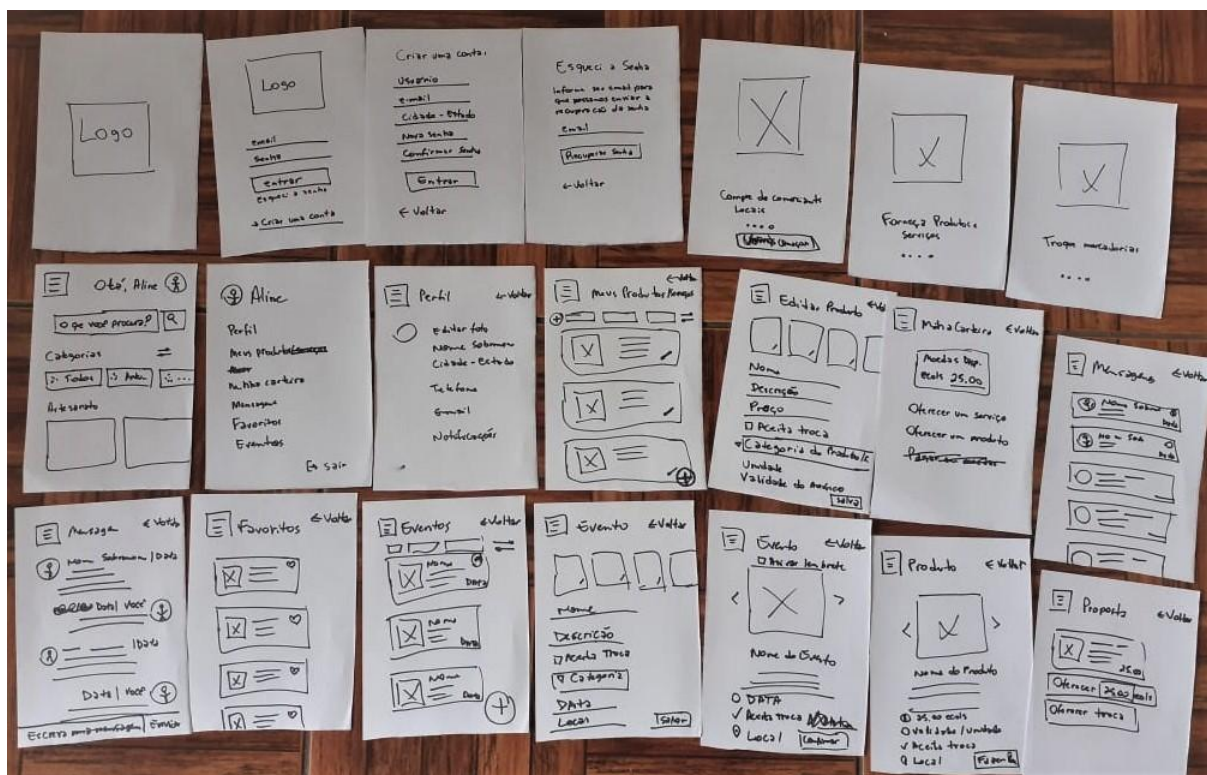 Logo
Logo
email
Senha
entrar
esqueci a senha
→ Criar uma conta
Criar uma conta.
Usuário
e-mail
Cidade - Estado
Nova senha
Confirmar Senha
Entrar
← Voltar
Esqueci a Senha
Informe seu email para
que possamos enviar a
recuperação da senha
email
Recuperar Senha
← Voltar
Compre de comerciante
Locais
Forneça Produtos e
serviços
Troque mercadorias
Olá, Aline
O que você procura?
Categorias
Todos
Artesanato
Aline
Perfil
Meus produtos
Minha carteira
Mensagens
Favoritos
Eventos
sair
Perfil
← Voltar
Editar foto
Nome Sobrenome
Cidade - Estado
Telefone
Email
Notificações
← Voltar
Meus Produtos
Editar Produto
Nome
Descrição
Preço
Aceita troca
Categoria do Produto
Unidade
Validade do
Salvar
Minha Carteira
← Voltar
Moedas Disp.
ecols 25.00
Oferecer um serviço
Oferecer um produto
Mensagens
← Voltar
Mensagem
← Voltar
Nome Sobrenome | Data
Data | Você
| Data
Data | Você
Escreva uma mensagem | Enviar
Favoritos
← Voltar
Eventos
← Voltar
Nome
DATA
Nome
DATA
Nome
Data
Evento
← Voltar
Nome
Descrição
Aceita Troca
Categoria
DATA
Local
Salvar
Evento
← Voltar
Ativar lembrete
< >
Nome do Evento
DATA
✓ Aceita troca
Local
Produto
← Voltar
< >
Nome do Produto
25.00 ecols
validade / unidade
✓ Aceita troca
Local
Proposta
← Voltar
25.00
Oferecer 25.00 ecols
Oferecer troca